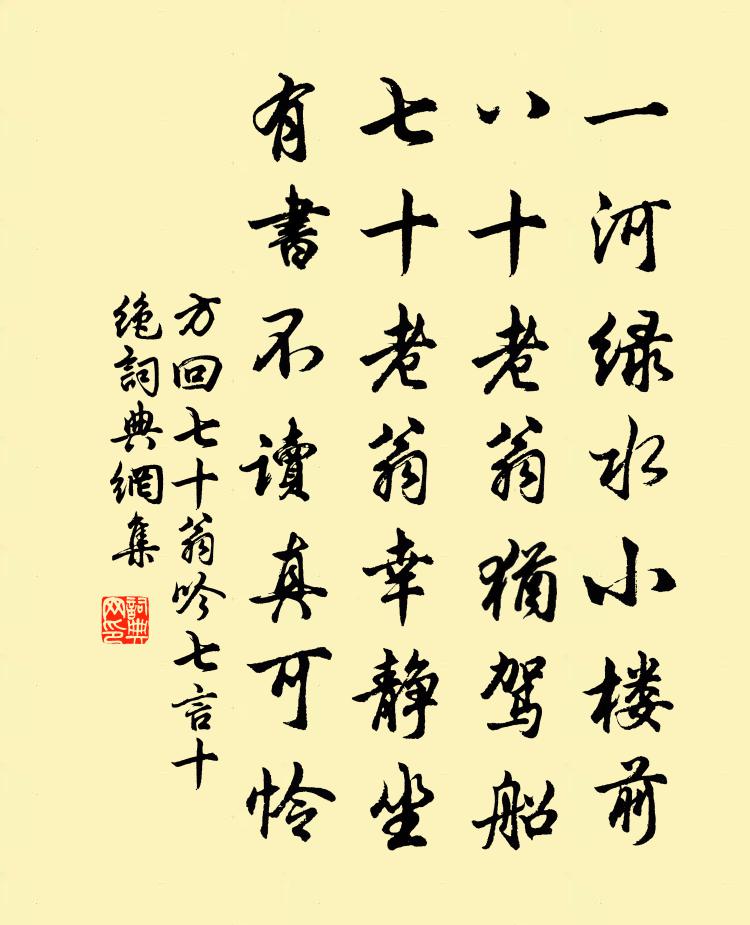 一河绿水小楼前
八十老翁犹驾船
七十老翁幸静坐
有書不讀真可怜
方回七十翁吟七言十
绝詞典網集
詞典网印